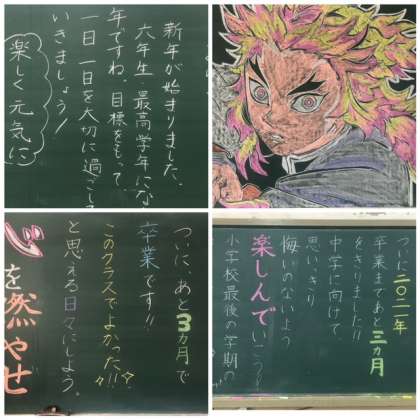 新年が始まりました、
六年生!最高学年にな
年ですね。目標をもって、
一日一日を大切に過ごして
いきましょう!
楽しく元気に
ついに、あと3カ月で
卒業です!!
このクラスでよかった!!
と思える日々にしよう。
を燃やせ
ついに二〇二一年
卒業まであと三カ月
をきりました!!
中学に向けて
思いっきり
悔いのないよう
楽しんでいこう!
小学校最後の学期の